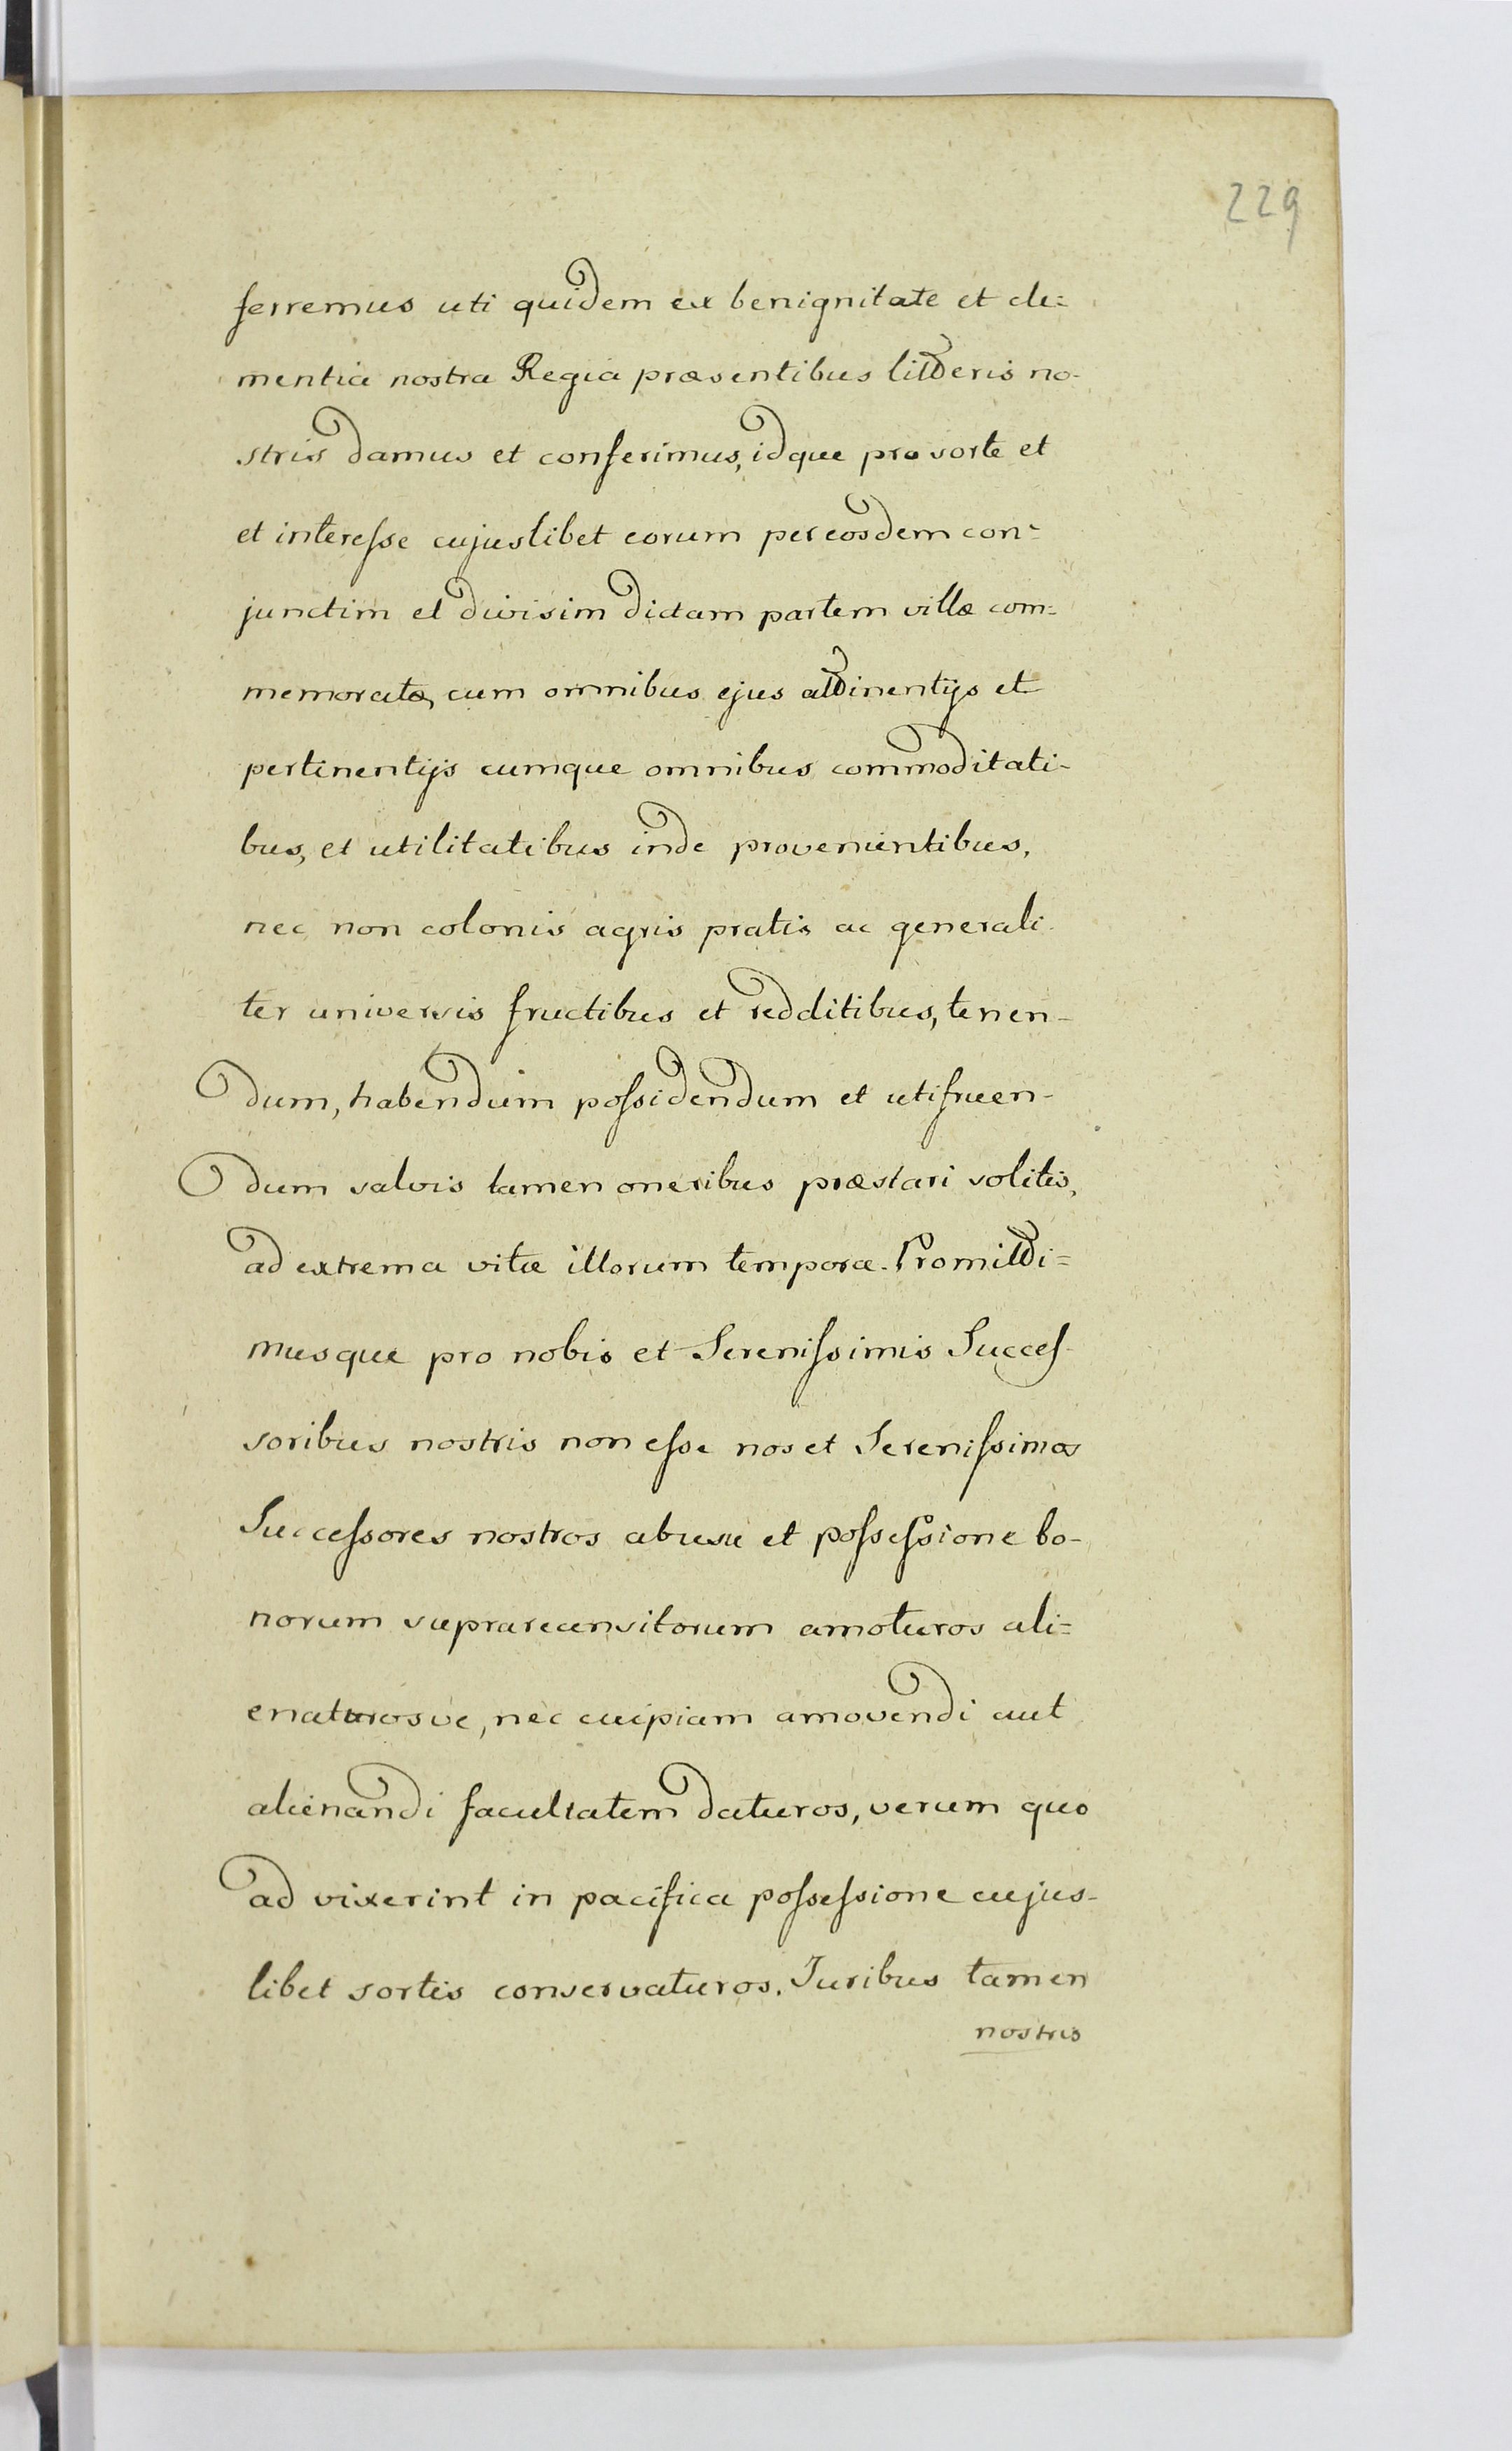 229
ferremus uti quidem ex benignitate et cle=
mentia nostra Regia præsentibus litteris no-
stris damus et conferimus, idque pro sorte et
et interesse cujuslibet eorum per eosdem con=
junctim et divisim dictam partem villæ com=
memoratæ, cum omnibus ejus attinentijs et
pertinentijs cumque omnibus commoditati-
bus, et utilitatibus inde provenientibus,
nec non colonis agris pratis ac generali-
ter universis fructibus et redditibus, tenen-
dum, habendum possidendum et utifruen-
dum salvis tamen oneribus præstari solitis,
ad extrema vitæ illorum tempora. Promitti=
musque pro nobis et Serenissimis Succes-
soribus nostris non esse nos et Serenissimos
Successores nostros ab usu et possessione bo-
norum suprarecensitorum amoturos ali=
enaturosve, nec cuipiam amovendi aut
alienandi facultatem daturos, verum quo
ad vixerint in pacifica possessione cujus-
libet sortis conservaturos. Juribus tamen
nostris